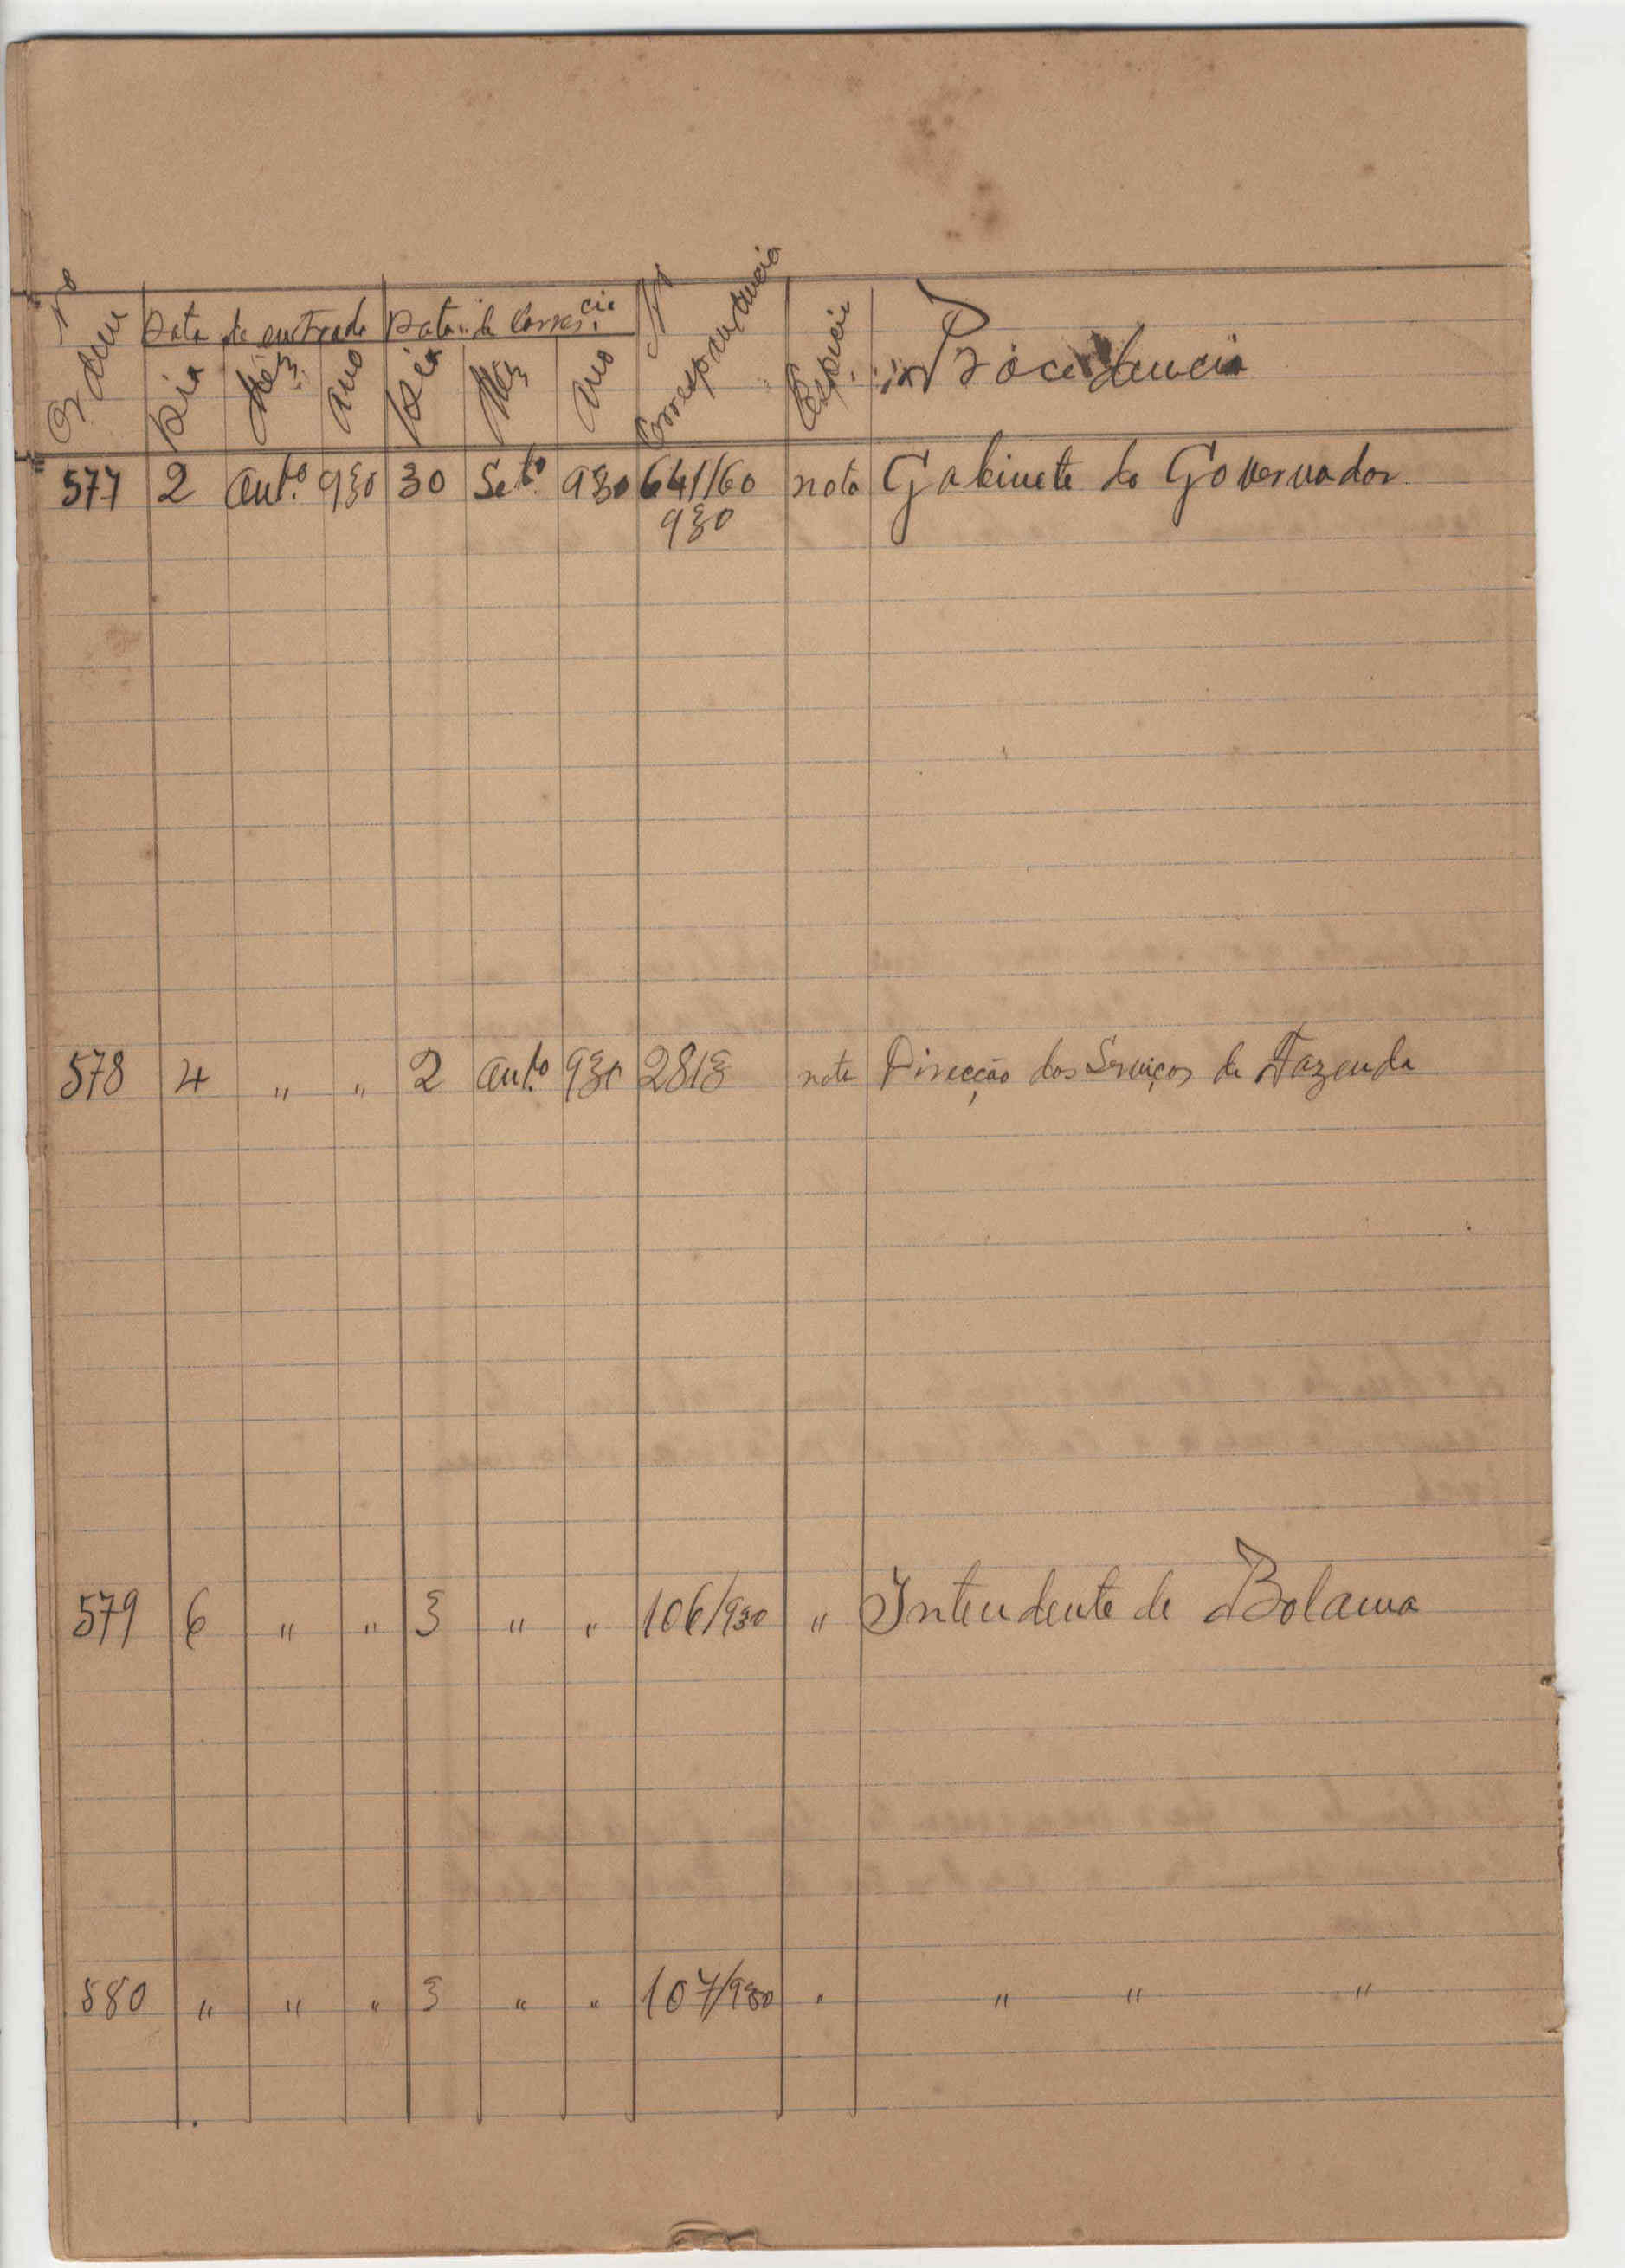 Nº Ordem
Data de entrada Data de Corres.cia
Dia Mez Ano Dia Mez Ano
Nº Correspondencia
Especie
Procedencia
577 2 Outº. 930 30 Setº. 930 641/60 nota Gabinete do Governador
930
578 4 " " 2 Outº. 930 2813 nota Direcção dos Serviços de Fazenda
579 6 " " 3 " " 106/930 " Intendente de Bolama
580 " " " 3 " " 107/930 " " " "